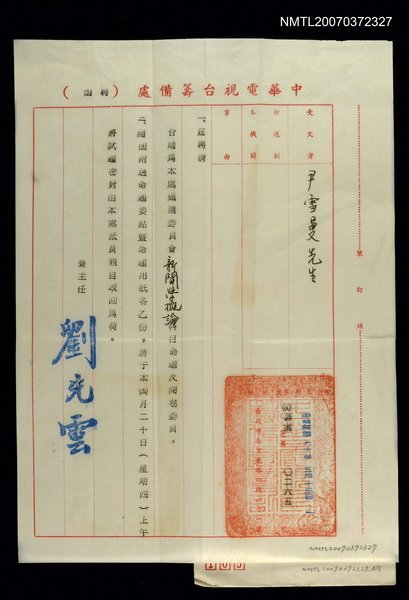 NMTL20070372327
中華電視台籌備處（聘函）
受文者
尹雪曼先生
抄送副
本機關
事由
一、茲聘請
台端為本處甄選委員會新聞學概論科目命題及閱卷委員。
二、隨函附送命題要點暨命題用紙各乙份，請于本四月二十日（星期四）上午
將試題密封由本處派員親自收回為荷。
兼主任
劉先雲
裝
訂
線
〇二六五
NMTL20070372327